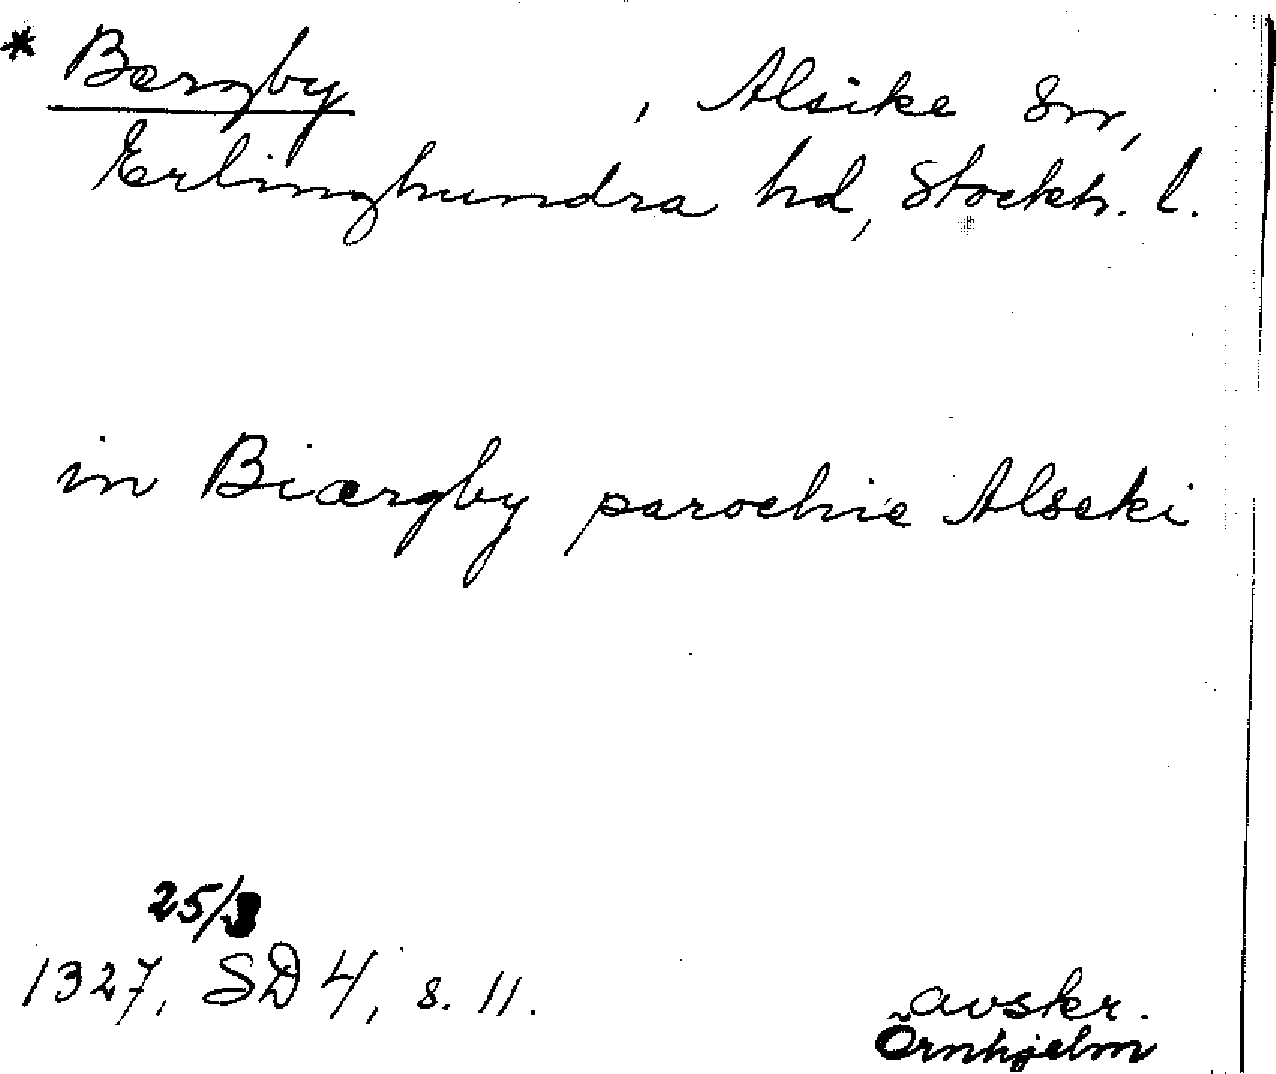 * Bergby , Alsike sn,
Erlinghundra hd, Stockh. l.
in Biærgby parochie Alseki
25/3
1327, SD 4, s. 11.
avskr.
Örnhjelm